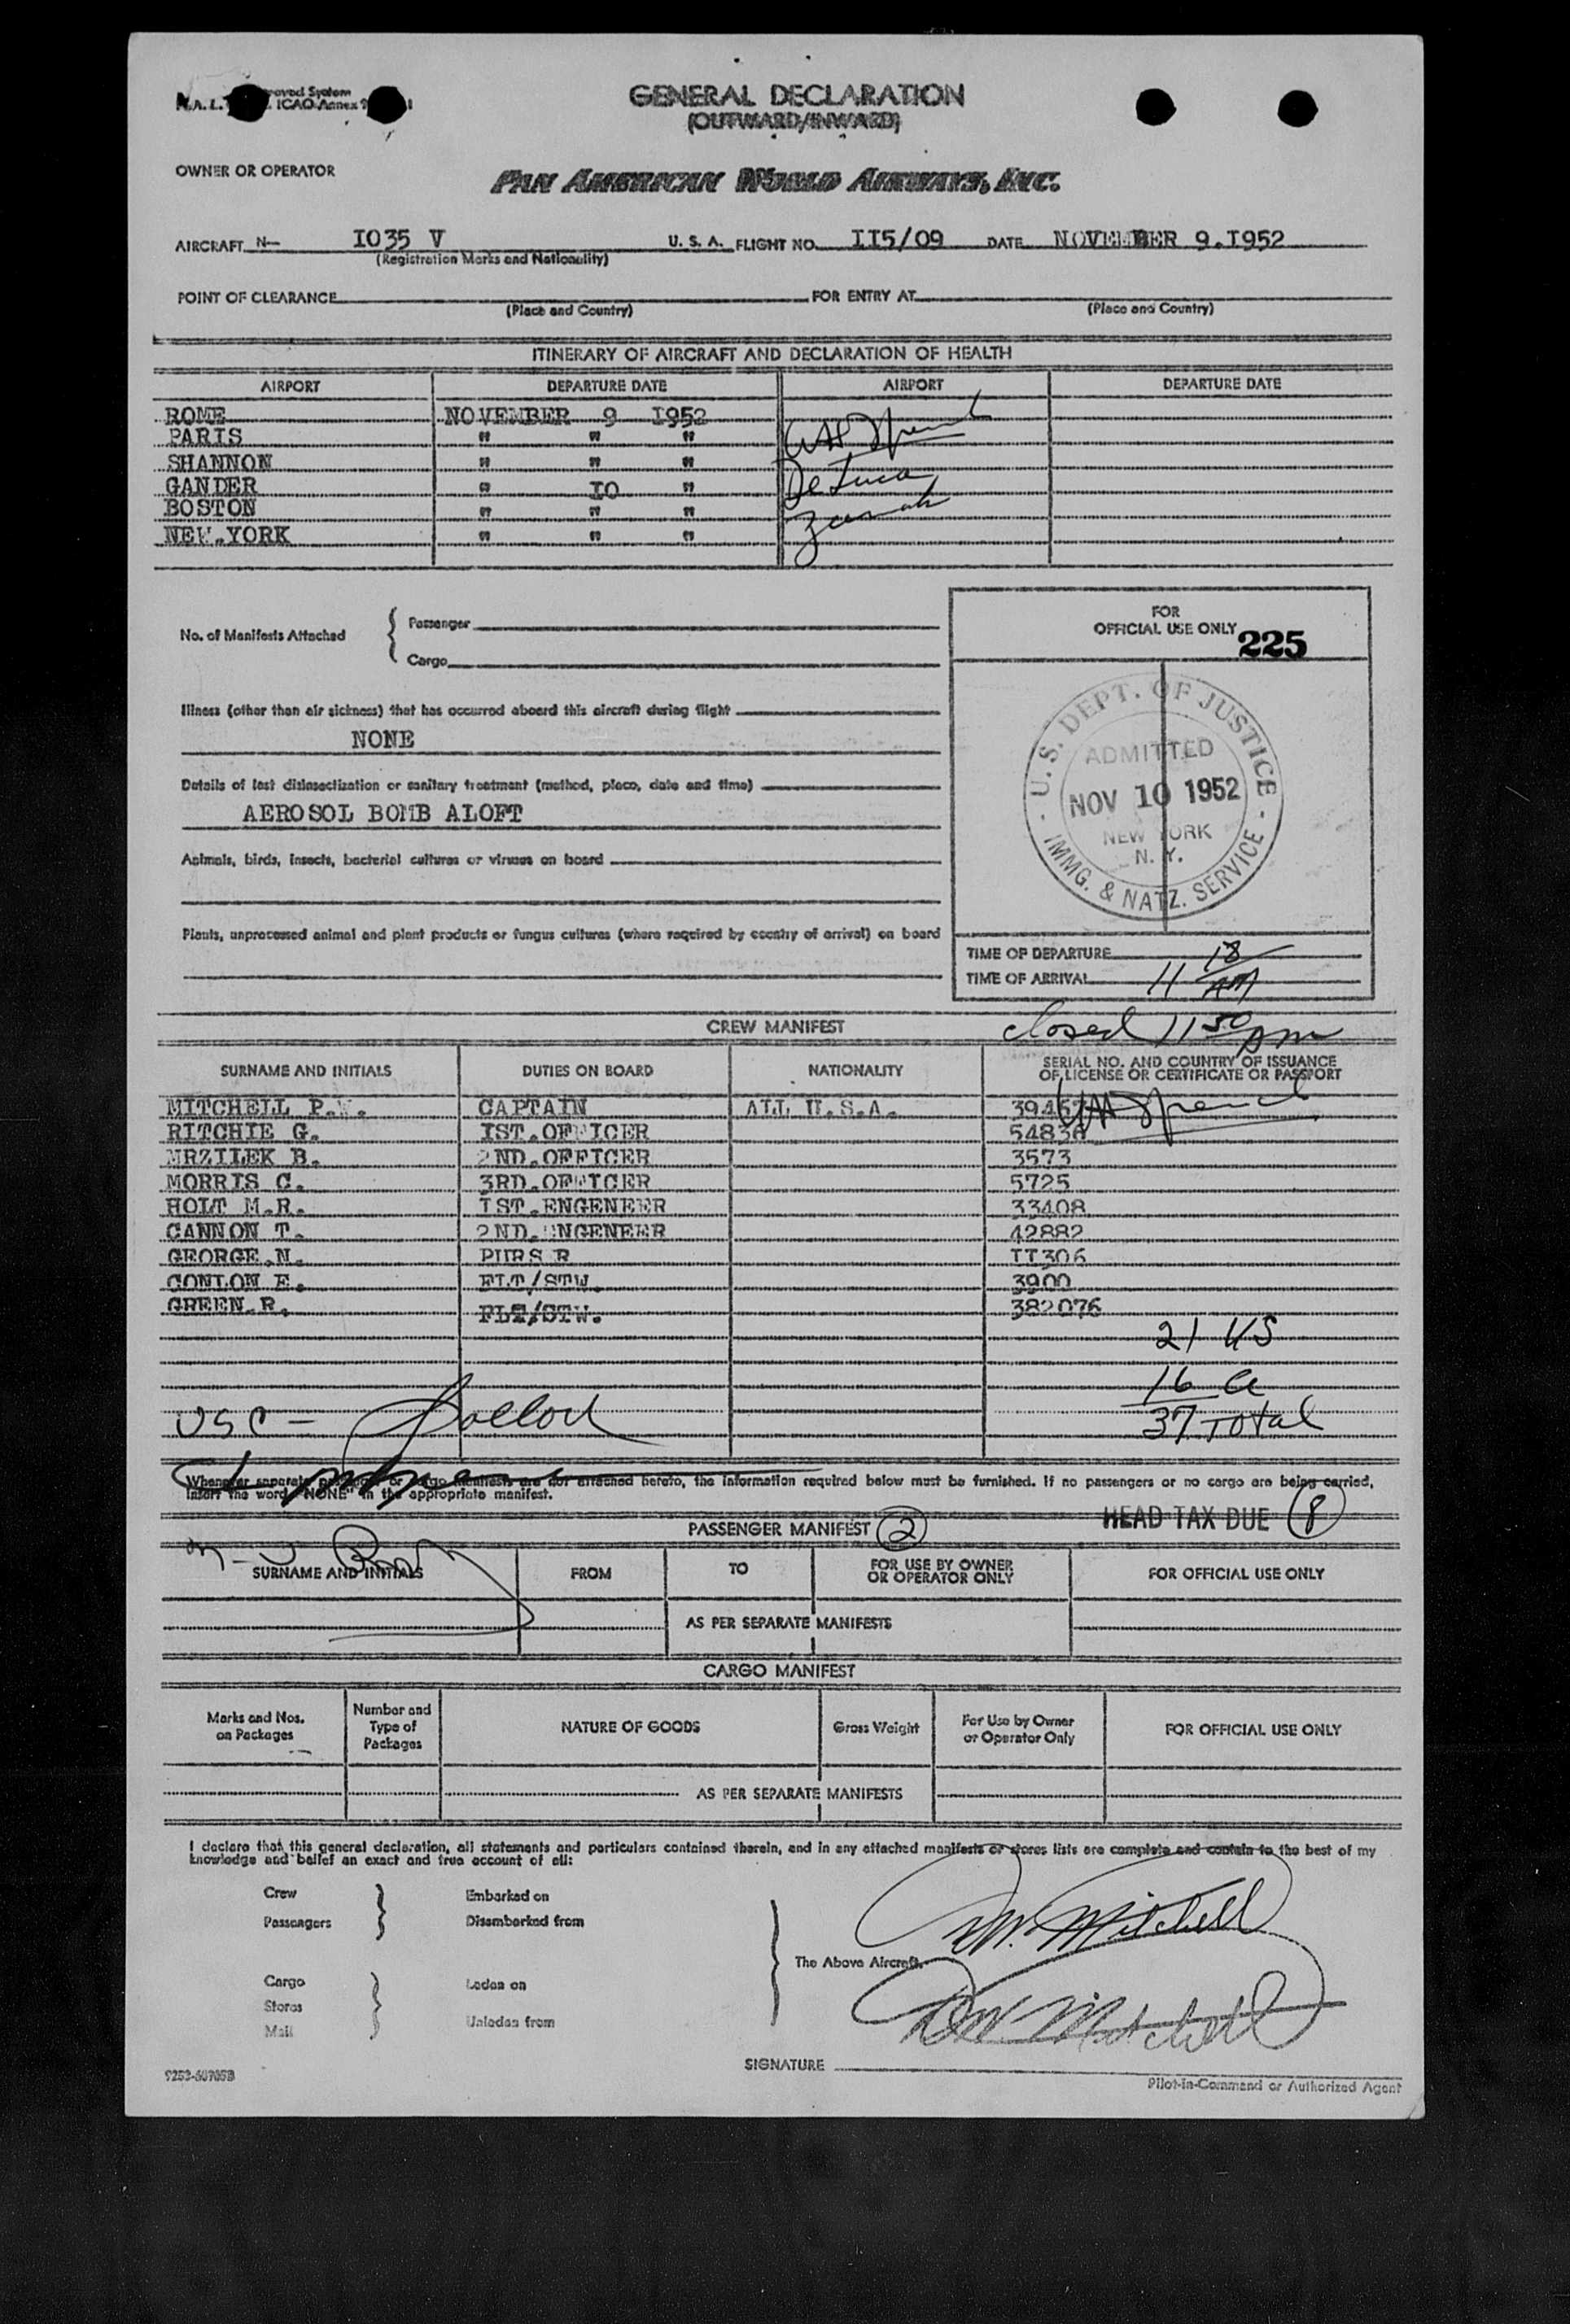 GENERAL DECLARATION
(OUTWARD/INWARD)
OWNER OR OPERATOR PAN AMERICAN WORLD AIRWAYS, INC.
AIRCRAFT N- I035 V U. S. A. FLIGHT NO. II5/09 DATE NOVEMBER 9.I952
(Registration Marks and Nationality)
POINT OF CLEARANCE FOR ENTRY AT
(Place and Country) (Place and Country)
ITINERARY OF AIRCRAFT AND DECLARATION OF HEALTH
AIRPORT DEPARTURE DATE AIRPORT DEPARTURE DATE
ROME NOVEMBER 9 I952
PARIS " " "
SHANNON " " "
GANDER " IO " De Luca
BOSTON " " "
NEW.YORK " " "
No. of Manifests Attached { Passenger
Cargo
FOR
OFFICIAL USE ONLY 225
Illness (other than air sickness) that has occurred aboard this aircraft during flight
NONE
Details of last disinsectization or sanitary treatment (method, place, date and time)
AEROSOL BOMB ALOFT
Animals, birds, insects, bacterial cultures or viruses on board
Plants, unprocessed animal and plant products or fungus cultures (where required by country of arrival) on board
U.S. DEPT. OF JUSTICE
ADMITTED
NOV 10 1952
NEW YORK
N. Y.
IMMG. & NATZ. SERVICE
TIME OF DEPARTURE
TIME OF ARRIVAL 11 18 AM
closed 11 50 am
CREW MANIFEST
SURNAME AND INITIALS DUTIES ON BOARD NATIONALITY SERIAL NO. AND COUNTRY OF ISSUANCE
OF LICENSE OR CERTIFICATE OR PASSPORT
MITCHELL P.W. CAPTAIN ALL U.S.A.
RITCHIE G. IST.OFFICER 54836
MRZILEK B. 2ND.OFFICER 3573
MORRIS C. 3RD.OFFICER 5725
HOLT M.R. IST.ENGENEER 33408
CANNON T. 2ND.ENGENEER 42882
GEORGE.N. PURS R II306
CONLON E. FLT/STW. 3900
GREEN.R. FLT/STW. 382076
21 US
16 a
37 Total
USC -
Whenever separate passenger or cargo manifests are not attached hereto, the information required below must be furnished. If no passengers or no cargo are being carried,
insert the word "NONE" in the appropriate manifest.
PASSENGER MANIFEST 2 HEAD TAX DUE 8
SURNAME AND INITIALS FROM TO FOR USE BY OWNER
OR OPERATOR ONLY FOR OFFICIAL USE ONLY
AS PER SEPARATE MANIFESTS
CARGO MANIFEST
Marks and Nos.
on Packages Number and
Type of
Packages NATURE OF GOODS Gross Weight For Use by Owner
or Operator Only FOR OFFICIAL USE ONLY
AS PER SEPARATE MANIFESTS
I declare that this general declaration, all statements and particulars contained therein, and in any attached manifests or stores lists are complete and contain to the best of my
knowledge and belief an exact and true account of all:
Crew Embarked on
Passengers Disembarked from
The Above Aircraft.
Cargo Laden on
Stores
Mail Unladen from
P.W. Mitchell
P.W. Mitchell
SIGNATURE
Pilot-in-Command or Authorized Agent